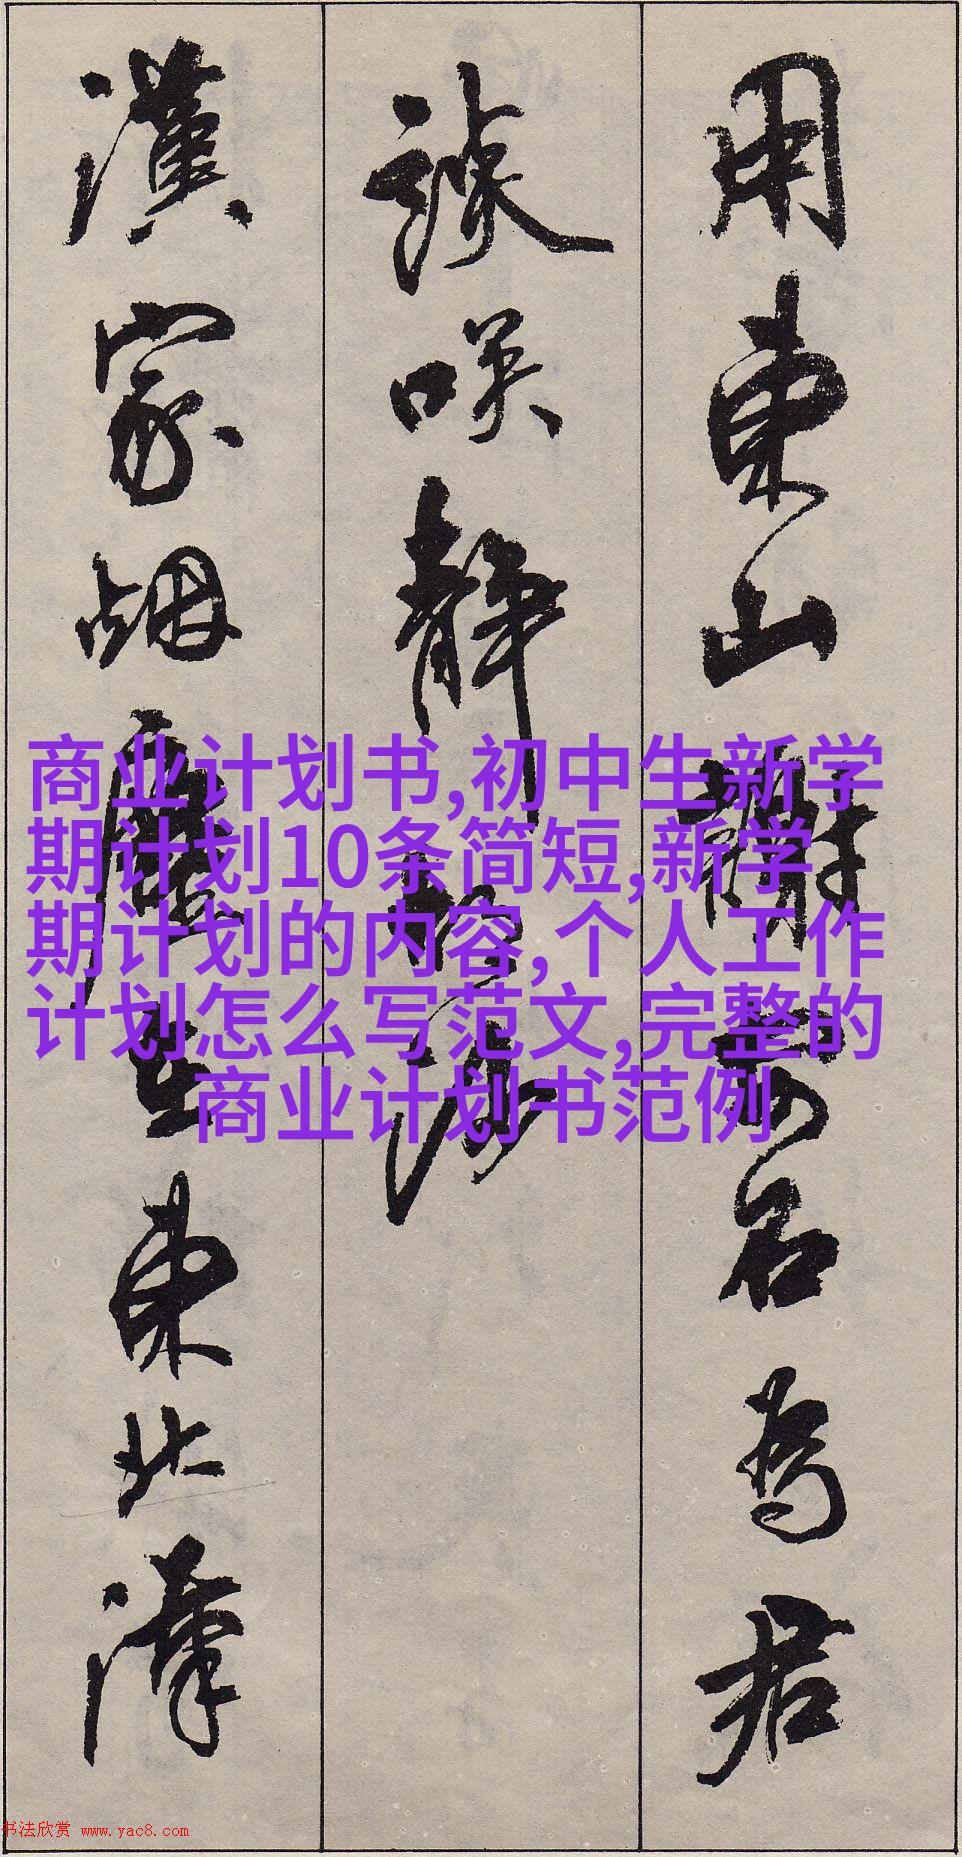 用東山謝安石為君
談笑静胡沙
漢家烟塵在東北漢
商业计划书,初中生新学
期计划10条简短,新学
期计划的内容,个人工作
计划怎么写范文,完整的
商业计划书范例
书法欣赏 www.yac8.com